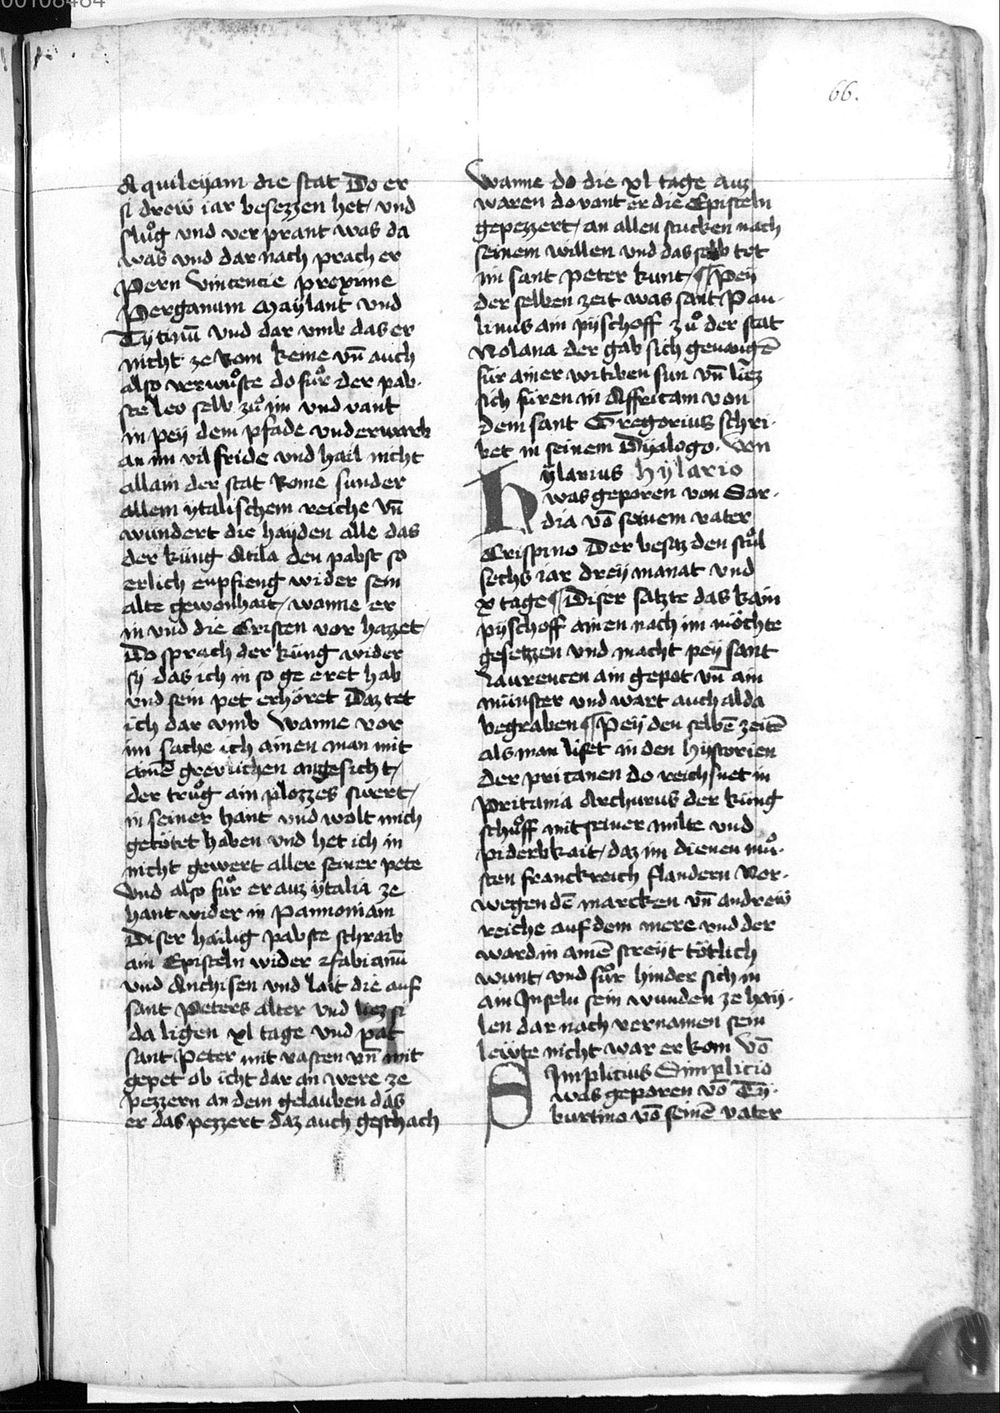 00108484
66.
Aquileyam die stat Do er
si drew iar besezzen het, und
sluͦg und verprant was da
was und dar nach prach er
Pern Vincencie proxime
Pergamum Maylant und
Tytinū und dar vmb das er
nicht ze Rom keme vn̄ auch
also verwuͦste do fuͦr der pab-
ste leo selb zuͦ im und vant
in pey dem pfade und erwarb
an im vil fride und hail nicht
allain der stat Rome sunder
allem ytalischem reiche vn̄
wundert die hayden alle das
der küng Atila den pabst so
erlich enpfieng wider sein
alte gewonhait, wanne er
in und die Cristen vor hazzet,
Do sprach der küng wider
sy das ich in so ge eret hab
und sein pet erhöret Daz tet
ich dar vmb Wanne vor
im sache ich ainen man mit
aīnē grewlichen angesicht,
der truͦg ain plozzes swert,
in seiner hant und wolt mich
getötet haben und het ich in
nicht gewert aller seiner pete
Und also fuͦr er auz ytalia ze
hant wider in Pannoniam
Diser hailig pabste schraib
ain Episteln wider Fabianū
und Anchisen und lait die auf
sant Peters alter und liez si
da ligen xl tage und pat
sant Peter mit vasten vn̄ mit
gepet ob icht dar an were ze
pezzern an dem gelauben das
er das pezzert daz auch geschach
Wanne do die xl tage auz
waren do vant er die Episteln
gepezzert, an allen stucken nach
seinem willen und das selb tet
im sant Peter kunt, ¶ Pey
der selben zeit was sant Pau-
linus ain pyschoff zuͦ der stat
Nolana der gab sich gevangē
für ainer wittben sun vn̄ liez
sich füren in Affricam von
dem sant Gregorius schri-
bet in seinem Dyalogo. Von
Hylarius hylario
was geporen von Sar-
dia vō seinem vater
Crispino Der besaz den stuͦl
sechs iar drey manat und
x tage ¶ Diser satzte das kain
pyschoff ainen nach im möchte
gesetzen und macht pey sant
Laurencen ain gepot vn̄ ain
münster und wart auch alda
begraben ¶ Pey den selbē zeitē
als man liset in den hystorien
der pritanen do reichsnet in
Pritania Archurus der küng
schuͦff mit seiner milte und
piderbkait, daz im dienen muͦ-
sten franckreich flandern Nor-
wegen dē marcken vn̄ andrew
reiche auf dem mere und der
ward in ainē streyt tötlich
wunt, und fuͦr hinder sich in
ain Inseln sein wunden ze hay-
len dar nach vernamen sein
lewte nicht war er kom vō
Simplicius Simplicio
was geporen vō Ty-
burtino vō seinē vater